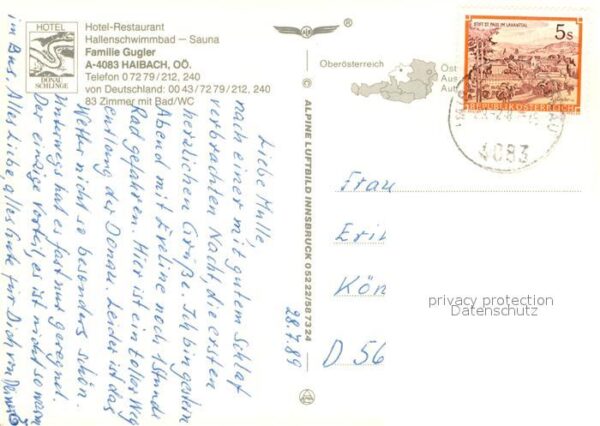 HOTEL
DONAU
SCHLINGE
Hotel-Restaurant
Hallenschwimmbad — Sauna
Familie Gugler
A-4083 HAIBACH, OÖ.
Telefon 0 72 79/212, 240
von Deutschland: 00 43/72 79/212, 240
83 Zimmer mit Bad/WC
Liebe Mulle,
nach einer mit gutem Schlaf
verbrachten Nacht, die ersten
herzlichen Grüße. Ich bin gestern
Abend mit Eveline noch 1 Stunde
Rad gefahren. Hier ist ein toller Weg
entlang der Donau. Leider ist das
Wetter nicht so besonders schön.
Unterwegs hat es fast nur geregnet.
Der einzige Vorteil, es ist nicht so warm
im Bus. Alles Liebe, alles Gute für Dich von
28.7.89
© ALPINE LUFTBILD INNSBRUCK 05222/587324
®
Oberösterreich
Öst
Aus
Aut
STIFT ST. PAUL IM LAVANTTAL
5s
REPUBLIK ÖSTERREICH
4083
Frau
Eri
Kön
D 56
privacy protection
Datenschutz